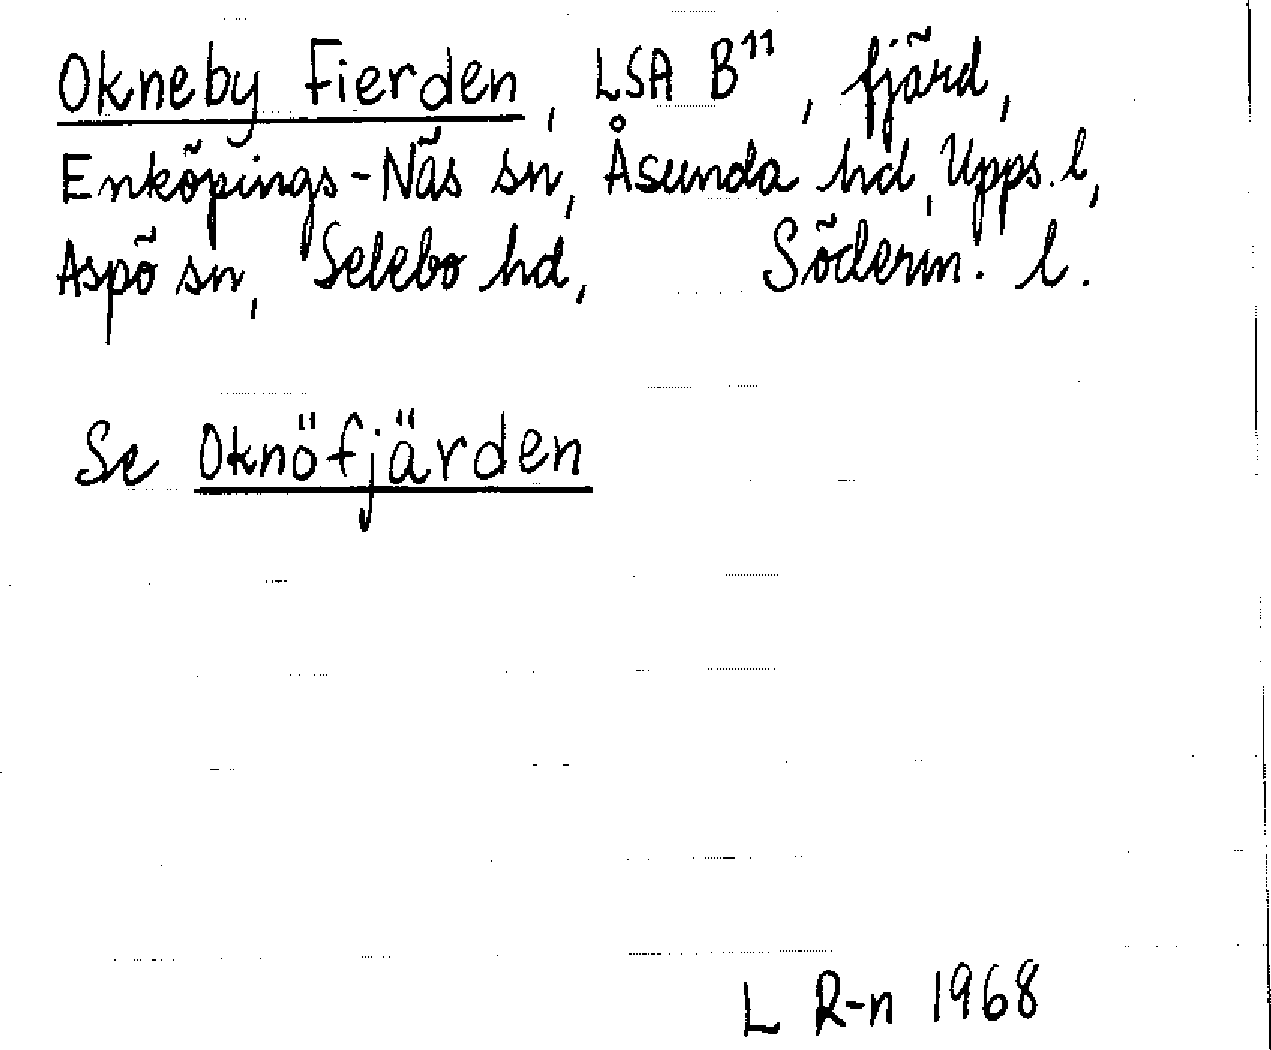 Okneby Fierden, LSA B¹¹, fjärd,
Enköpings-Näs sn, Åsunda hd, Upps. l,
Aspö sn, Selebo hd, Söderm. l.
Se Oknöfjärden
L R-n 1968